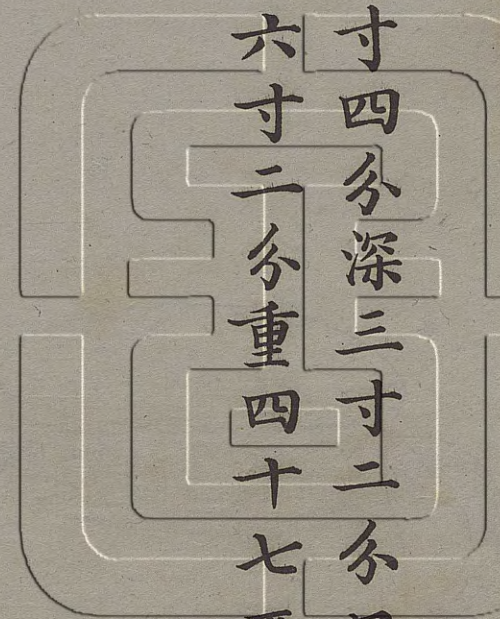 寸四分深三寸二分
六寸二分重四十七